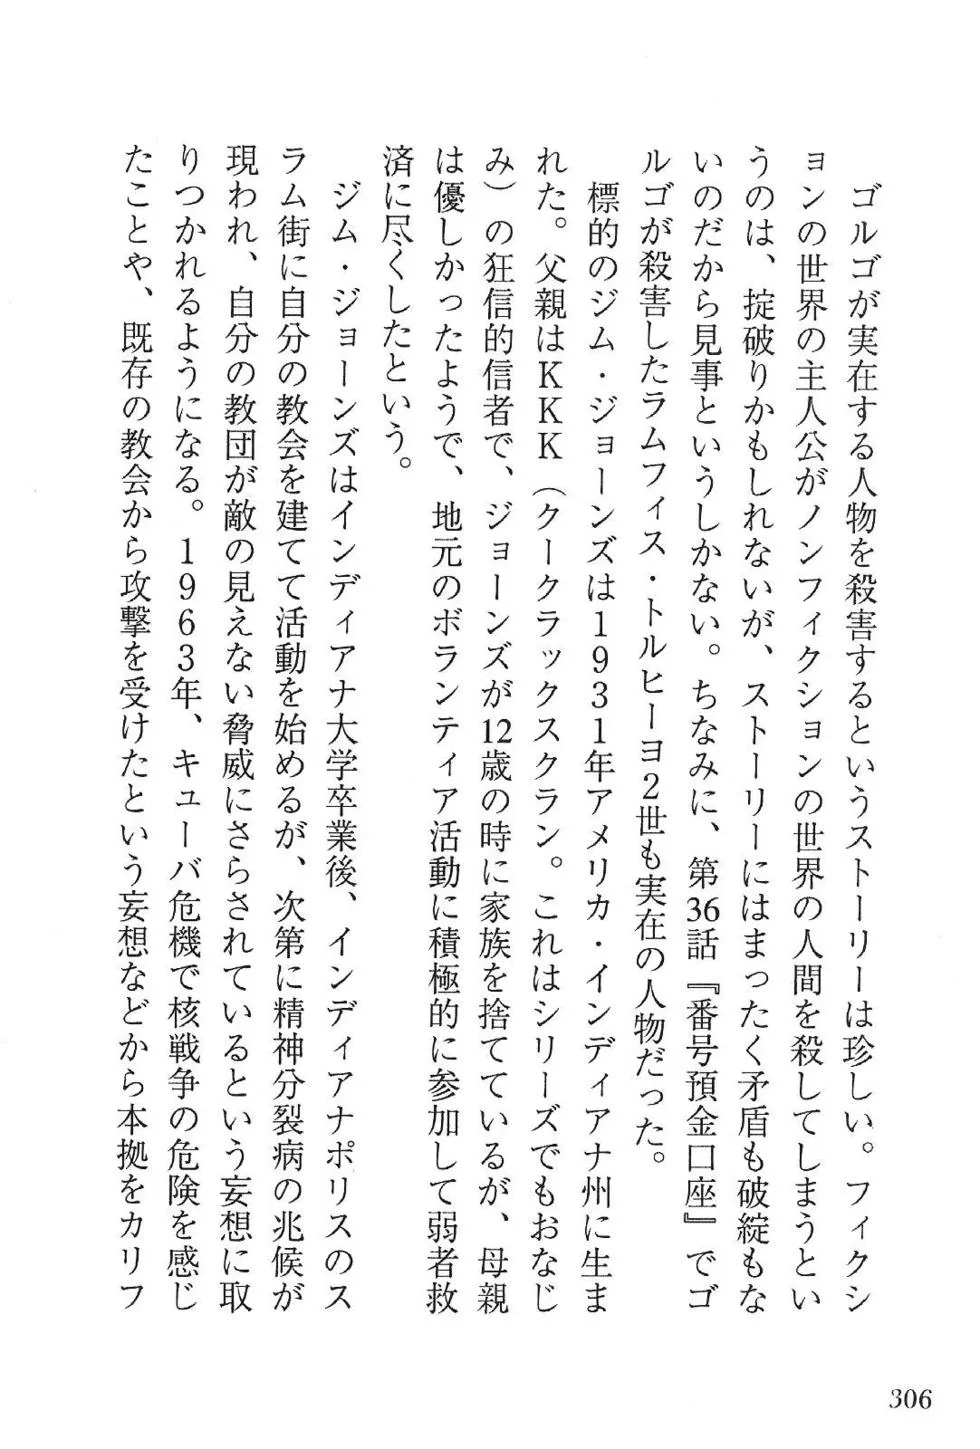 ゴルゴが実在する人物を殺害するというストーリーは珍しい。フィクシ
ョンの世界の主人公がノンフィクションの世界の人間を殺してしまうとい
うのは、掟破りかもしれないが、ストーリーにはまったく矛盾も破綻もな
いのだから見事というしかない。ちなみに、第36話『番号預金口座』でゴ
ルゴが殺害したラムフィス・トルヒーヨ2世も実在の人物だった。
標的のジム・ジョーンズは1931年アメリカ・インディアナ州に生ま
れた。父親はKKK（クークラックスクラン。これはシリーズでもおなじ
み）の狂信的信者で、ジョーンズが12歳の時に家族を捨てているが、母親
は優しかったようで、地元のボランティア活動に積極的に参加して弱者救
済に尽くしたという。
ジム・ジョーンズはインディアナ大学卒業後、インディアナポリスのス
ラム街に自分の教会を建てて活動を始めるが、次第に精神分裂病の兆候が
現われ、自分の教団が敵の見えない脅威にさらされているという妄想に取
りつかれるようになる。1963年、キューバ危機で核戦争の危険を感じ
たことや、既存の教会から攻撃を受けたという妄想などから本拠をカリフ
306